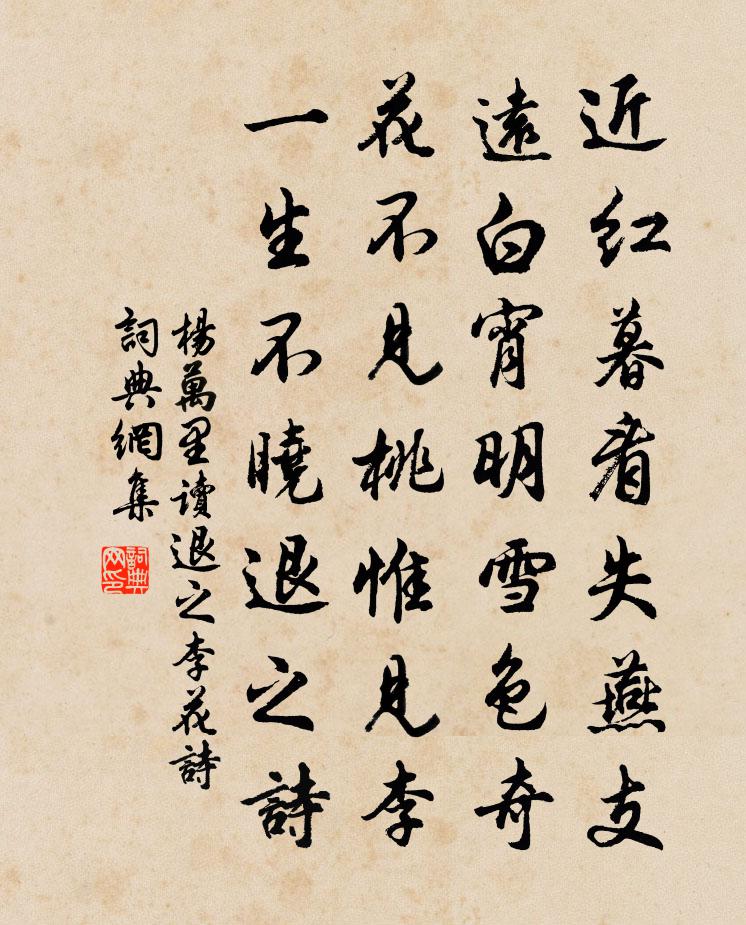 近红暮看失燕支
遠白宵明雪色奇
花不見桃惟見李
一生不曉退之詩
楊萬里讀退之李花詩
詞典網集
詞典网印